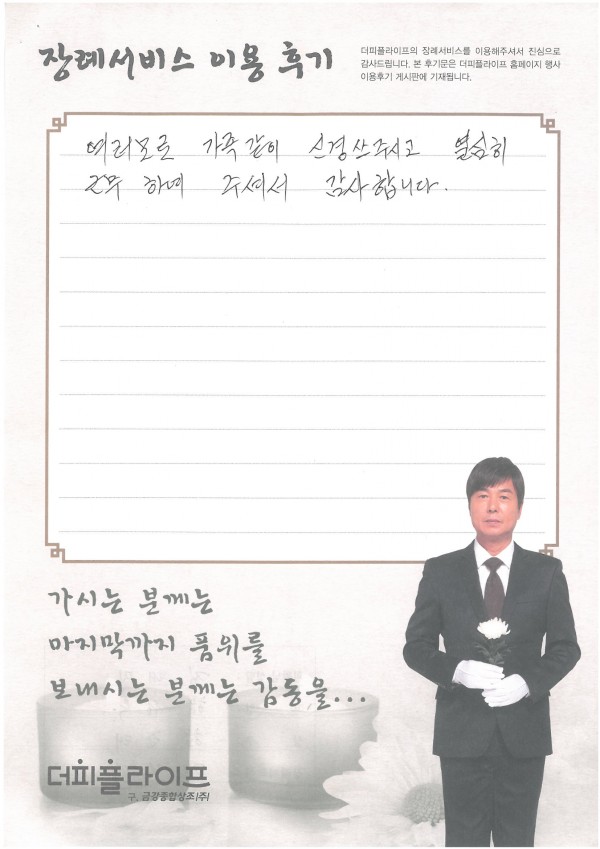 장례서비스 이용 후기
더피플라이프의 장례서비스를 이용해주셔서 진심으로
감사드립니다. 본 후기문은 더피플라이프 홈페이지 행사
이용후기 게시판에 기재됩니다.
여러모로 가족같이 신경쓰주시고 열심히
근무 하여 주셔서 감사합니다.
가시는 분께는
마지막까지 품위를
보내시는 분께는 감동을...
더피플라이프
구. 금강종합상조(주)